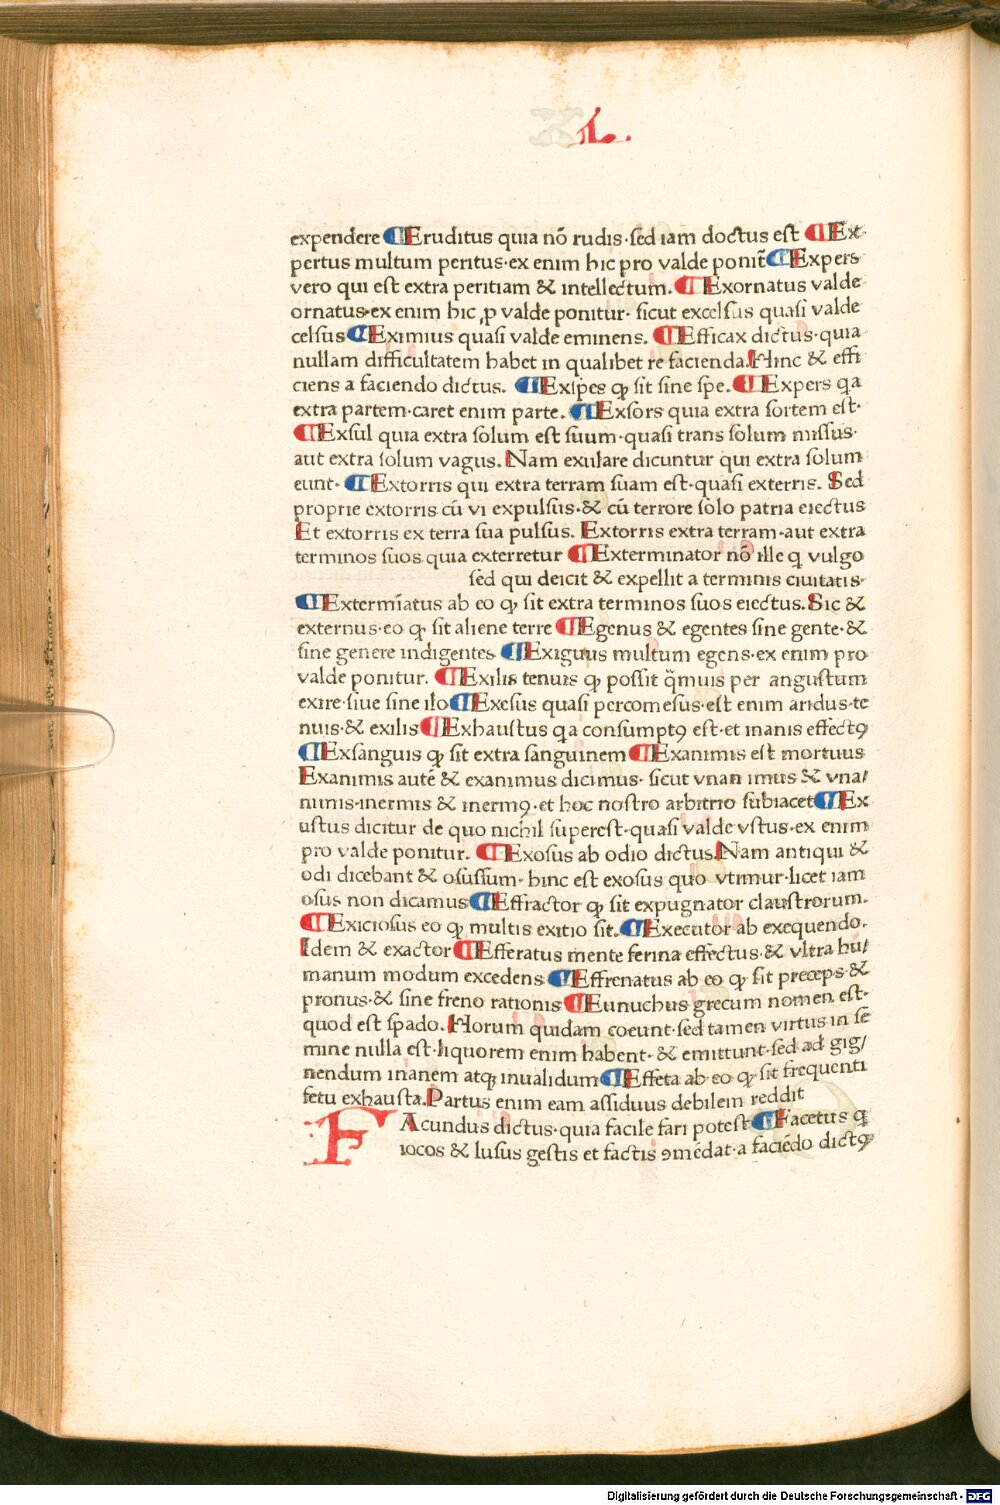 L.
expendere ¶Eruditus quia nō rudis·sed iam doctus est ¶Ex-
pertus multum peritus·ex enim hic pro valde ponit̃ ¶Expers
vero qui est extra peritiam & intellectum. ¶Exornatus valde
ornatus·ex enim hic ꝓ valde ponitur· sicut excelsus quasi valde
celsus ¶Eximius quasi valde eminens. ¶Efficax dictus·quia
nullam difficultatem habet in qualibet re facienda. Hinc & effi
ciens a faciendo dictus. ¶Exspes ꝙ sit sine spe. ¶Expers q̄a
extra partem·caret enim parte. ¶Exsors quia extra sortem est·
¶Exsul quia extra solum est suum·quasi trans solum missus·
aut extra solum vagus. Nam exulare dicuntur qui extra solum
eunt· ¶Extorris qui extra terram suam est·quasi exterris. Sed
proprie extorris cū vi expulsus·& cū terrore solo patria eiectus
Et extorris ex terra sua pulsus. Extorris extra terram·aut extra
terminos suos quia exterretur ¶Exterminator nō ille q vulgo
sed qui deicit & expellit a terminis ciuitatis·
¶Extermīatus ab eo ꝙ sit extra terminos suos eiectus. Sic &
externus·eo ꝙ sit aliene terre ¶Egenus & egentes sine gente·&
sine genere indigentes ¶Exiguus multum egens·ex enim pro
valde ponitur. ¶Exilis tenuis ꝙ possit q̄muis per angustum
exire·siue sine ilo ¶Exesus quasi percomesus·est enim aridus·te
nuis·& exilis ¶Exhaustus q̄a consumptꝯ est·et inanis effectꝯ
¶Exsanguis ꝙ sit extra sanguinem ¶Exanimis est mortuus
Exanimis autē & exanimus dicimus· sicut vnanimus & vna/
nimis·inermis & inermꝯ·et hoc nostro arbitrio subiacet ¶Ex
ustus dicitur de quo nichil superest·quasi valde vstus·ex enim
pro valde ponitur. ¶Exosus ab odio dictus. Nam antiqui &
odi dicebant & osussum· hinc est exosus quo vtimur·licet iam
osus non dicamus ¶Effractor ꝙ sit expugnator claustrorum.
¶Exiciosus eo ꝙ multis exitio sit. ¶Executor ab exequendo.
Idem & exactor ¶Efferatus mente ferina effectus·& vltra hu/
manum modum excedens ¶Effrenatus ab eo ꝙ sit preceps·&
pronus·& sine freno rationis ¶Eunuchus grecum nomen est·
quod est spado. Horum quidam coeunt·sed tamen virtus in se
mine nulla est·liquorem enim habent·& emittunt·sed ad gig/
nendum inanem atqꝫ inualidum ¶Effeta ab eo ꝙ sit frequenti
fetu exhausta. Partus enim eam assiduus debilem reddit
FAcundus dictus·quia facile fari potest ¶Facetus q
iocos & lusus gestis et factis ꝯmēdat·a faciēdo dictꝯ
Digitalisierung gefördert durch die Deutsche Forschungsgemeinschaft - DFG